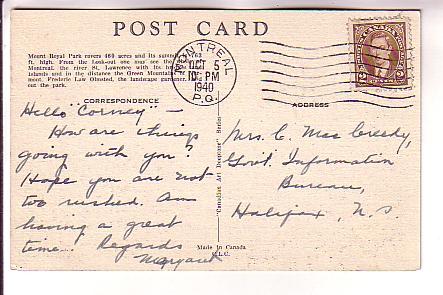 POST CARD
Mount Royal Park covers 460 acres and its summit, 763
ft. high. From the Look-out one may see the
Montreal, the river St. Lawrence with its
islands and in the distance the Green Mountains
mont. Frederic Law Olmsted, the landscape gardener,
out the park.
MONTREAL
OCT 5
10 PM
1940
P.Q.
CANADA
2
CORRESPONDENCE
ADDRESS
Hello "Corney" -
How are things
going with you?
Hope you are not
too rushed. Am
having a great
time. Regards
Margaret
"Canadian Art Deeptone" Series
Mrs. C. Mac Creedy,
Govt. Information
Bureau,
Halifax, N.S.
Made in Canada